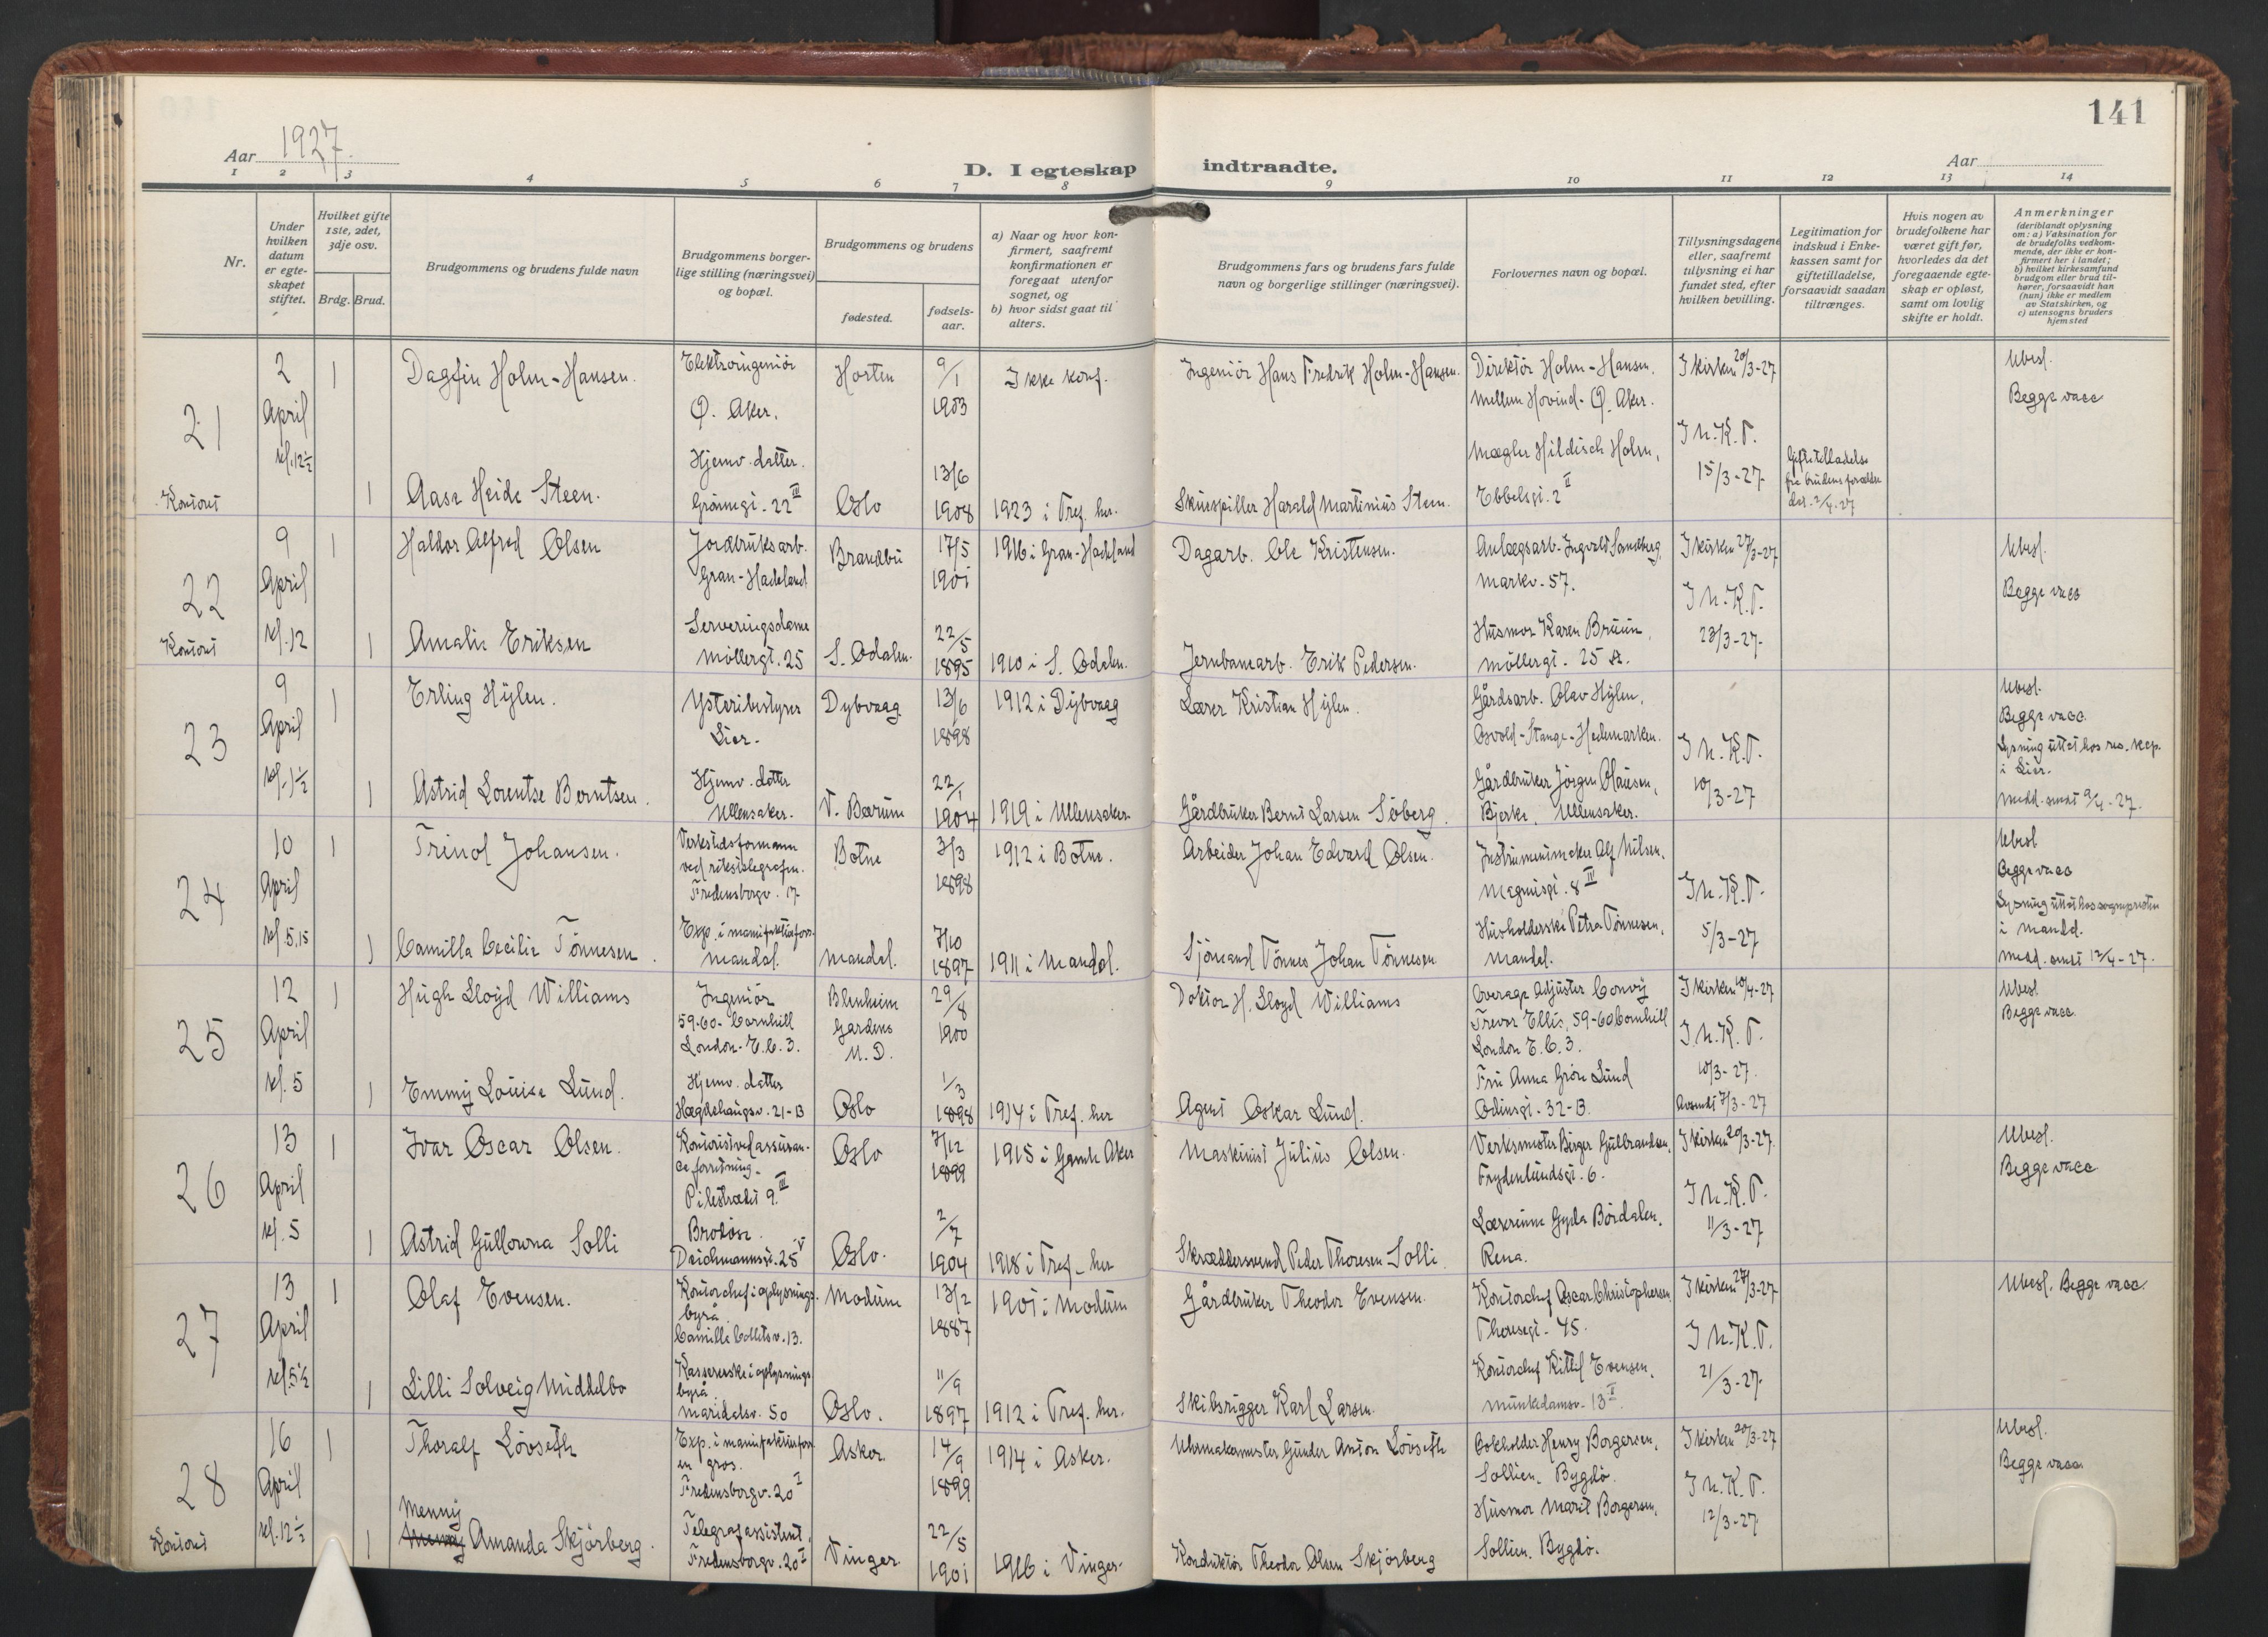 141
Aar 1927.
D. I egteskap indtraadte.
Aar
1 2 3 4 5 6 7 8 9 10 11 12 13 14
Nr.
Under hvilken datum er egteskapet stiftet.
Hvilket gifte 1ste, 2det, 3dje osv.
Brdg. Brud.
Brudgommens og brudens fulde navn
Brudgommens borgerlige stilling (næringsvei) og bopæl.
Brudgommens og brudens
fødested.
fødselsaar.
a) Naar og hvor konfirmert, saafremt konfirmationen er foregaat utenfor sognet, og
b) hvor sidst gaat til alters.
Brudgommens fars og brudens fars fulde navn og borgerlige stillinger (næringsvei).
Forlovernes navn og bopæl.
Tillysningsdagene eller, saafremt tillysning ei har fundet sted, efter hvilken bevilling.
Legitimation for indskud i Enkekassen samt for giftetilladelse, forsaavidt saadan tiltrænges.
Hvis nogen av brudefolkene har været gift før, hvorledes da det foregaaende egteskap er opløst, samt om lovlig skifte er holdt.
Anmerkninger (deriblandt oplysning om: a) Vaksination for de brudefolks vedkommende, der ikke er konfirmert her i landet; b) hvilket kirkesamfund brudgom eller brud tilhører, forsaavidt han (hun) ikke er medlem av Statskirken, og c) utensogns bruders hjemsted
21 Kontoret
2 April kl. 12½
1 Dagfin Holm-Hansen.
Elektroingeniör Ø. Aker.
Horten
9/1 1903
Ikke konf.
Ingeniör Hans Fredrik Holm-Hansen.
Direktör Holm-Hansen, Mellem Hovind-Ø. Aker.
I kirken 20/3-27
I N.K.T. 15/3-27
Ubesl. Begge vacc
1 Aasa Heide Steen.
Hjemv. datter. Grönnegt. 22 III
Oslo
13/6 1908
1923 i Tref. her.
Skuespiller Harald Martinius Steen.
Mægler Hildisch Holm, Ebbelsgt. 2 II
Giftetilladelse fra brudens forældre dat. 2/4-27
22 Kontoret
9 April kl. 12
1 Haldor Alfred Olsen
Jordbruksarb. Gran-Hadeland
Brandbu
17/5 1901
1916 i Gran-Hadeland
Dagarb. Ole Kristensen.
Anlægsarb. Ingvald Sandberg, Markv. 57.
I kirken 27/3-27
I N.K.T. 23/3-27-
Ubesl. Begge vacc
1 Amalie Eriksen
Serveringsdame Möllergt. 25
S. Odalen.
22/5 1895
1910 i S. Odalen.
Jernbanearb. Erik Pedersen.
Husmor Karen Bruun, Möllergt. 25 A.
23
9 April kl. 1½
1 Erling Hylen.
Ysteribestyrer Lier.
Dybvaag
13/6 1898
1912 i Dybvaag
Lærer Kristian Hylen.
Gårdsarb. Olav Hylen, Osvold-Stange-Hedemarken.
I N.K.T. 10/3-27
Ubesl. Begge vacc.
Lysning uttat hos res. kap. i Lier.
Medd. sendt 9/4-27.
1 Astrid Lorentse Berntsen.
Hjemv. datter Ullensaker.
V. Bærum
22/1 1904
1919 i Ullensaker.
Gårdbruker Bernt Larsen Söberg.
Gårdbruker Jörgen Olausen, Bjerke, Ullensaker.
24
10 April kl. 5,15
1 Trinol Johansen.
Verkstedsformann ved rikstelegrafen. Fredensborgv. 17
Botne
3/3 1898
1912 i Botne.
Arbeider Johan Edvard Olsen.
Instrumentmaker Alf Nilsen, Magnusgt. 8 IV
I N.K.T. 5/3-27
Ubesl Begge vacc
Lysning uttat hos sognepresten i Mandal.
Medd. sendt 12/4-27.
1 Camilla Cecilie Tönnesen.
Exp. i manufakturforr. Mandal.
Mandal.
7/10 1897
1911 i Mandal.
Sjömand Tönnes Johan Tönnesen
Husholderske Petra Tönnesen, Mandal.
25
12 April kl. 5
1 Hugh Lloyd Williams
Ingeniör 59-60- Cornhill London-E.C. 3.
Blenheim Gardens
29/8 1900
Doktor H. Lloyd Williams
Average Adjuster Trevor Ellis, 59-60 Cornhill London E.C. 3.
I kirken 10/4-27
I N.K.T. 10/3-27.
Avsendt 7/3-27
Ubesl Begge vacc.
1 Emmy Louise Lund.
Hjemv. datter Hægdehaugsv. 21-B
Oslo
1/3 1898
1914 i Tref. her
Agent Oskar Lund.
Fru Anna Gröve Lund Odinsgt. 32-B.
26
13 April kl. 5
1 Ivar Oscar Olsen.
Kontorist ved assuranceforretning. Pilestrædet 9 III
Oslo
7/12 1899
1915 i Gamle Aker
Maskinist Julius Olsen.
Verksmester Birger Gulbrandsen, Frydenlundsgt. 6.
I kirken 20/3-27.
I N.K.T. 11/3-27
Ubesl. Begge vacc
1 Astrid Gullowna Solli
Brodöse. Deichmannsgt. 25 V
Oslo.
2/7 1904
1918 i Tref. her
Skræddersvend Peder Thoresen Solli.
Lærerinne Gyda Bördalen, Rena.
27
13 April kl. 5½
1 Olaf Evensen.
Kontorchef i oplysningsbyrå. Camilla Colletsv. 13.
Modum
13/2 1887
1901 i Modum
Gårdbruker Theodor Evensen.
Kontorchef Oscar Christophersen, Theresegt. 45.
I kirken 27/3-27
I N.K.T. 21/3-27.
Ubesl. Begge vacc.
1 Lilli Solveig Middelbo
Kassererske i oplysningsbyrå Maridalsv. 50
Oslo.
11/9 1897
1912 i Tref. her.
Skibsrigger Karl Larsen.
Kontorchef Kittil Evensen, Munkdamsv. 13 II.
28 Kontoret
16 April kl. 12½
1 Thoralf Lövseth
Exp. i manufakturforr. en gros. Fredensborgv. 20 I
Asker.
14/9 1899
1914 i Asker.
Uhrmakermester Gunder Anton Lövseth
Bokholder Henry Borgersen, Sollien, Bygdö.
I kirken 20/3-27
I N.K.T. 12/3-27
Ubesl. Begge vacc
1 Menny Amanda Skjörberg.
Telegrafassistent, Fredensborgv. 20 I
Vinger.
22/5 1901
1916 i Vinger.
Konduktör Theodor Olsen Skjörberg
Husmor Marit Borgersen, Sollien, Bygdö.